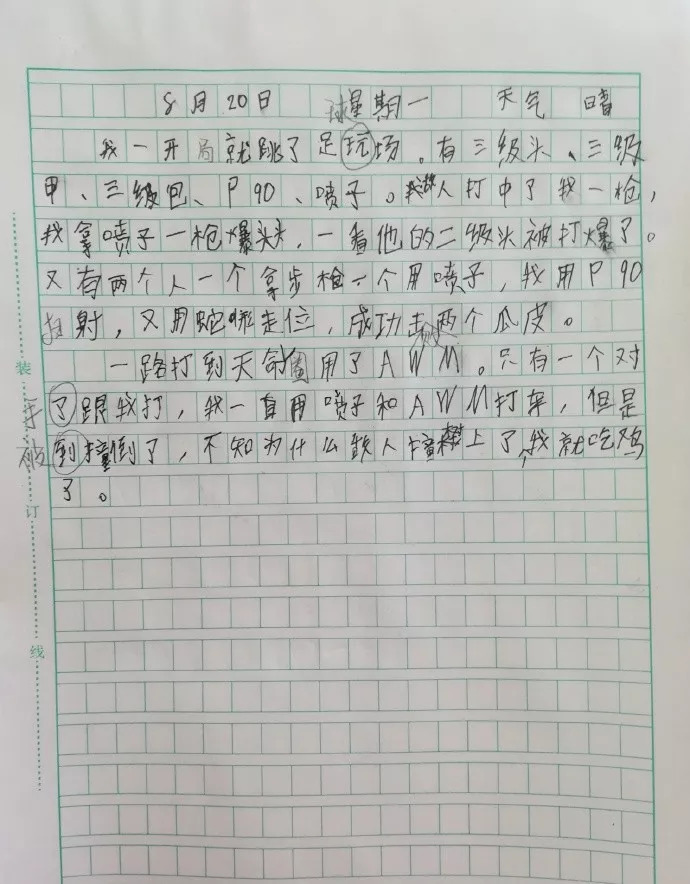 8月20日 星期一 天气 晴
我一开局就跳了足玩场。有三级头、三级
甲、三级包、P90、喷子。敌人打中了我一枪,
我拿喷子一枪爆头,一看他的二级头被打爆了。
又有两个人一个拿步枪一个用喷子,我用P90
扫射,又用蛇形走位,成功击败两个瓜皮。
一路打到天命圈用了AWM。只有一个对
了跟我打,我一直用喷子和AWM打车,但是
到撞倒了,不知为什么敌人撞树上了,我就吃鸡
了。
装
订
线